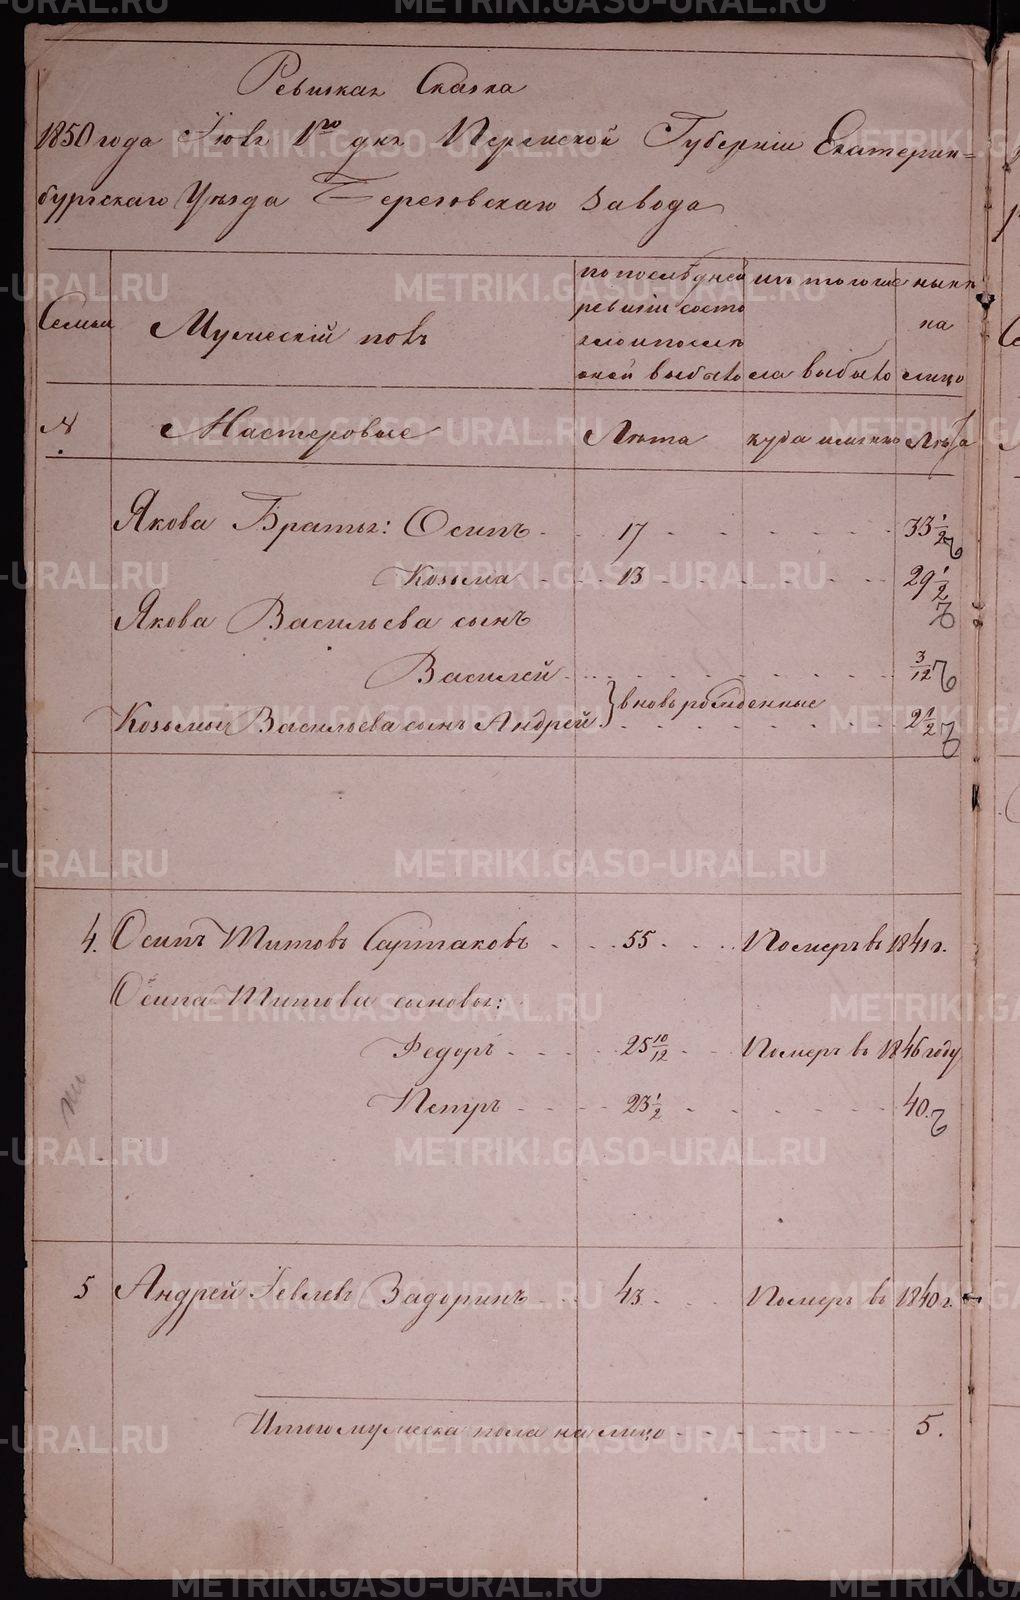 Ревизкая Сказка
1850 года Июня 1го дня Пермской Губернiи Екатерин=
бургскаго Уѣзда Березовскаго Завода
Семьи
Мужескiй полъ
по последней
ревизiи состо
яло и после
оной выбыло
изъ того чис
ла выбыло
нынѣ
на
лицо
№
Мастеровые
Лѣта
куда именно
Лѣта
Якова Братья: Осипъ 17 33 1/2
Козьма 13 29 1/2
Якова Васильева сынъ
Василей 3/12
вновь рожденные
Козьмы Васильева сынъ Андрей 2 1/2
4. Осипъ Титовъ Сартаковъ 55 Померъ въ 1841 г.
Осипа Титова сыновья:
Федоръ 25 10/12 Померъ въ 1846 году
Петръ 23 1/2 40.
5 Андрей Iевлевъ Задоринъ 43 Померъ въ 1840 г.
Итого мужеска пола на лицо 5.
METRIKI.GASO-URAL.RU